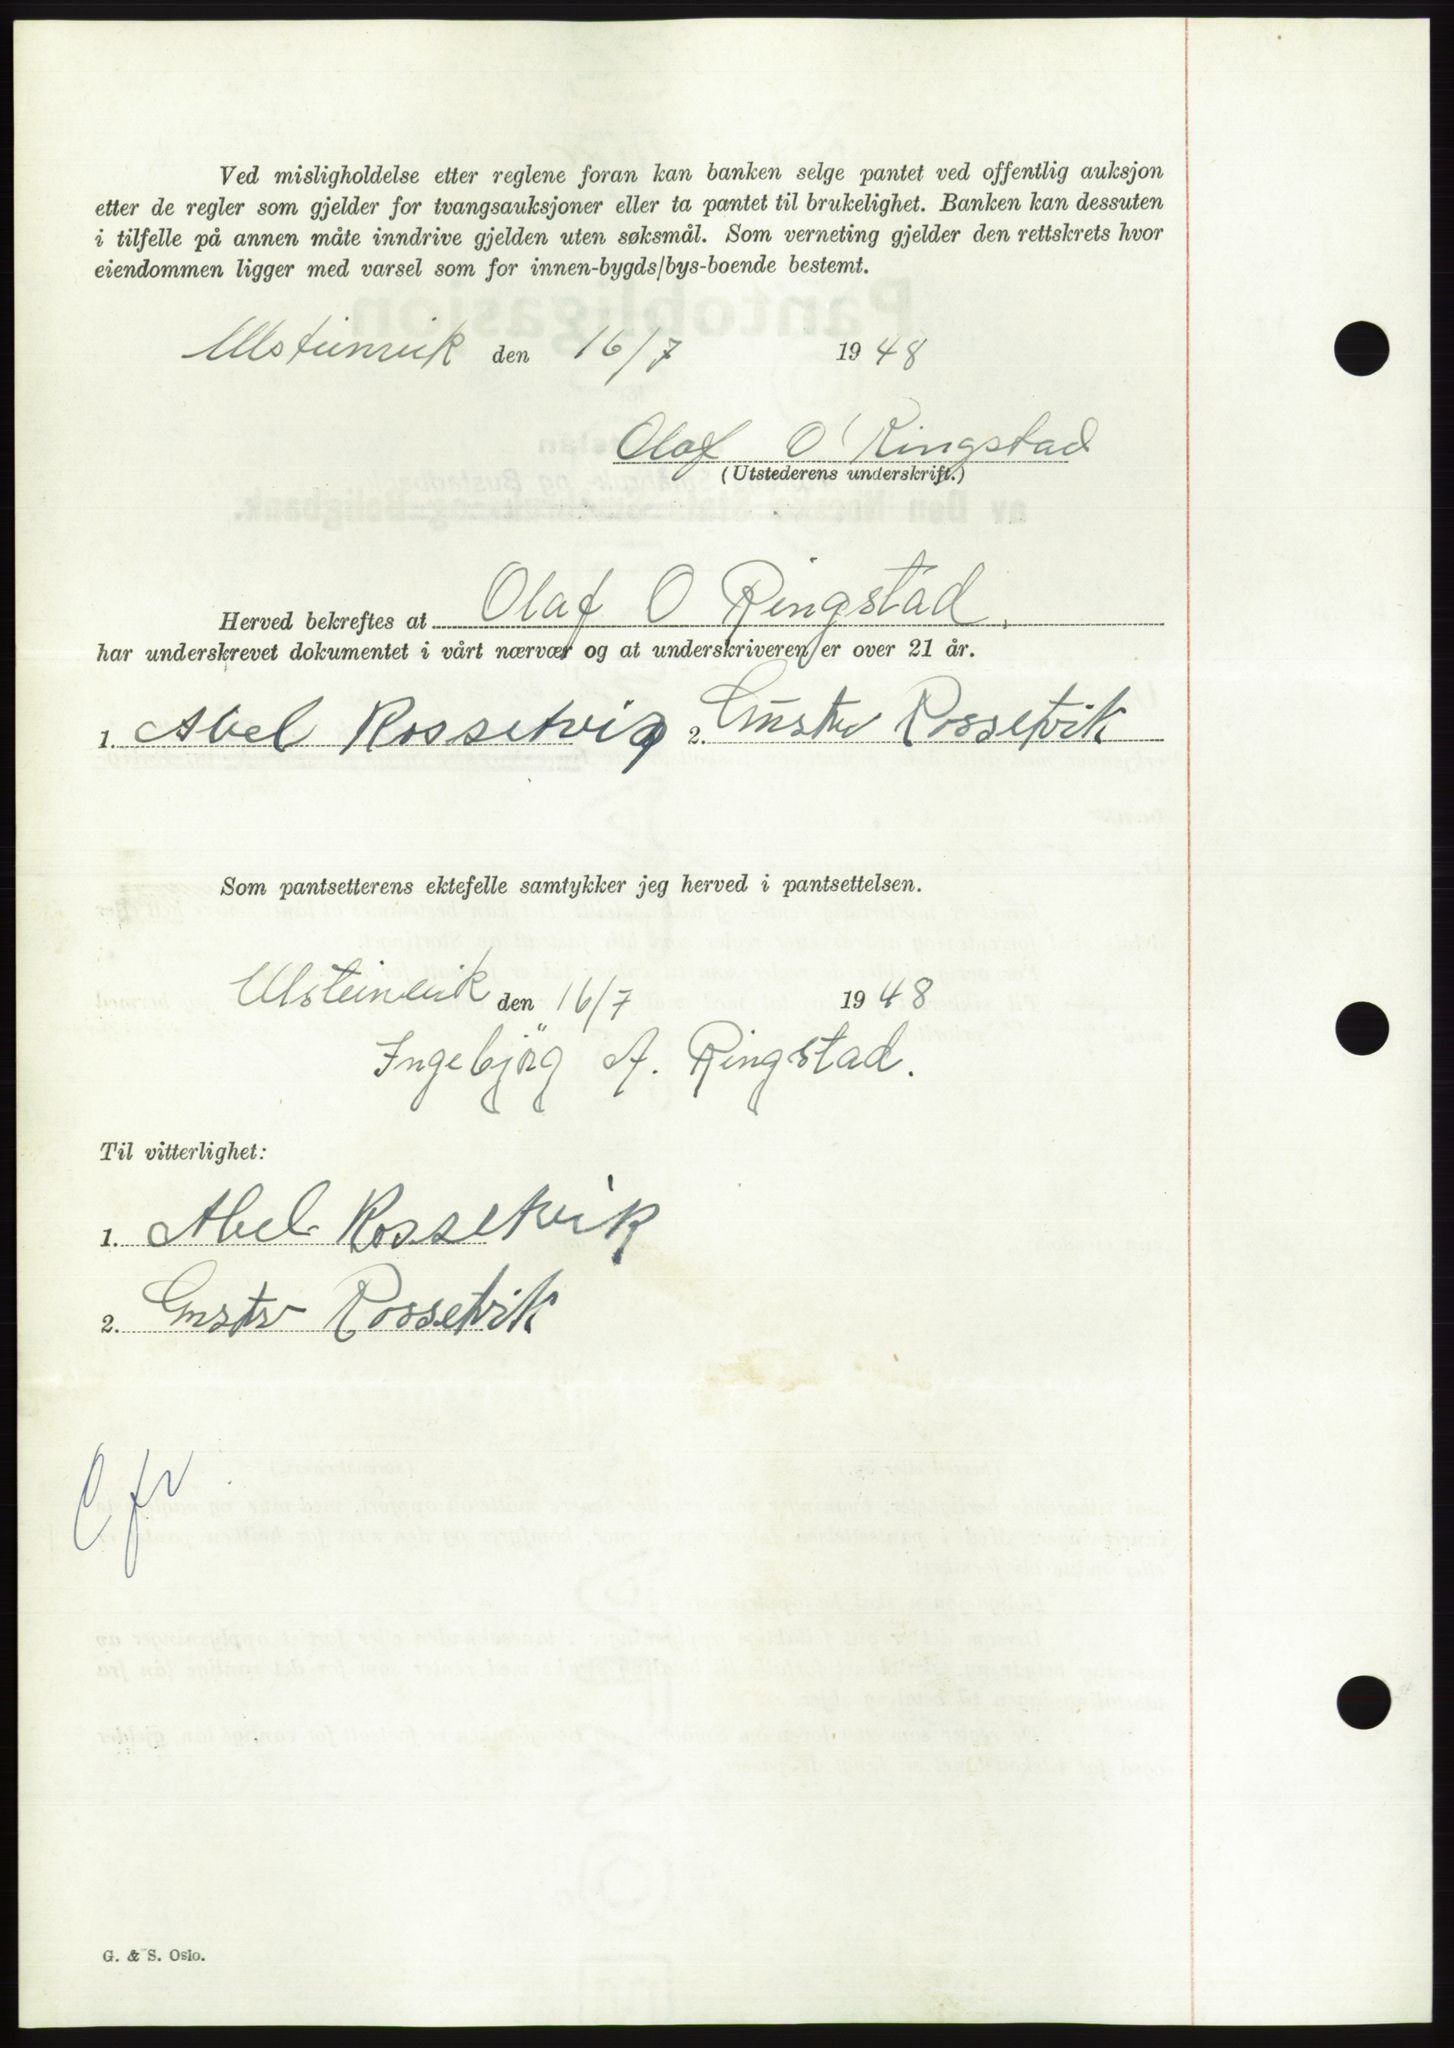 Ved misligholdelse etter reglene foran kan banken selge pantet ved offentlig auksjon
etter de regler som gjelder for tvangsauksjoner eller ta pantet til brukelighet. Banken kan dessuten
i tilfelle på annen måte inndrive gjelden uten søksmål. Som verneting gjelder den rettskrets hvor
eiendommen ligger med varsel som for innen-bygds/bys-boende bestemt.
Ulsteinvik den 16/7 1948
Olaf O Ringstad
(Utstederens underskrift.)
Herved bekreftes at Olaf O Ringstad,
har underskrevet dokumentet i vårt nærvær og at underskriveren er over 21 år.
1. Abel Rossetvig 2. Gustav Rossetvik
Som pantsetterens ektefelle samtykker jeg herved i pantsettelsen.
Ulsteinvik den 16/7 1948
Ingebjög A. Ringstad.
Til vitterlighet:
1. Abel Rossetvik
2. Gustav Rossetvik
G. & S. Oslo.